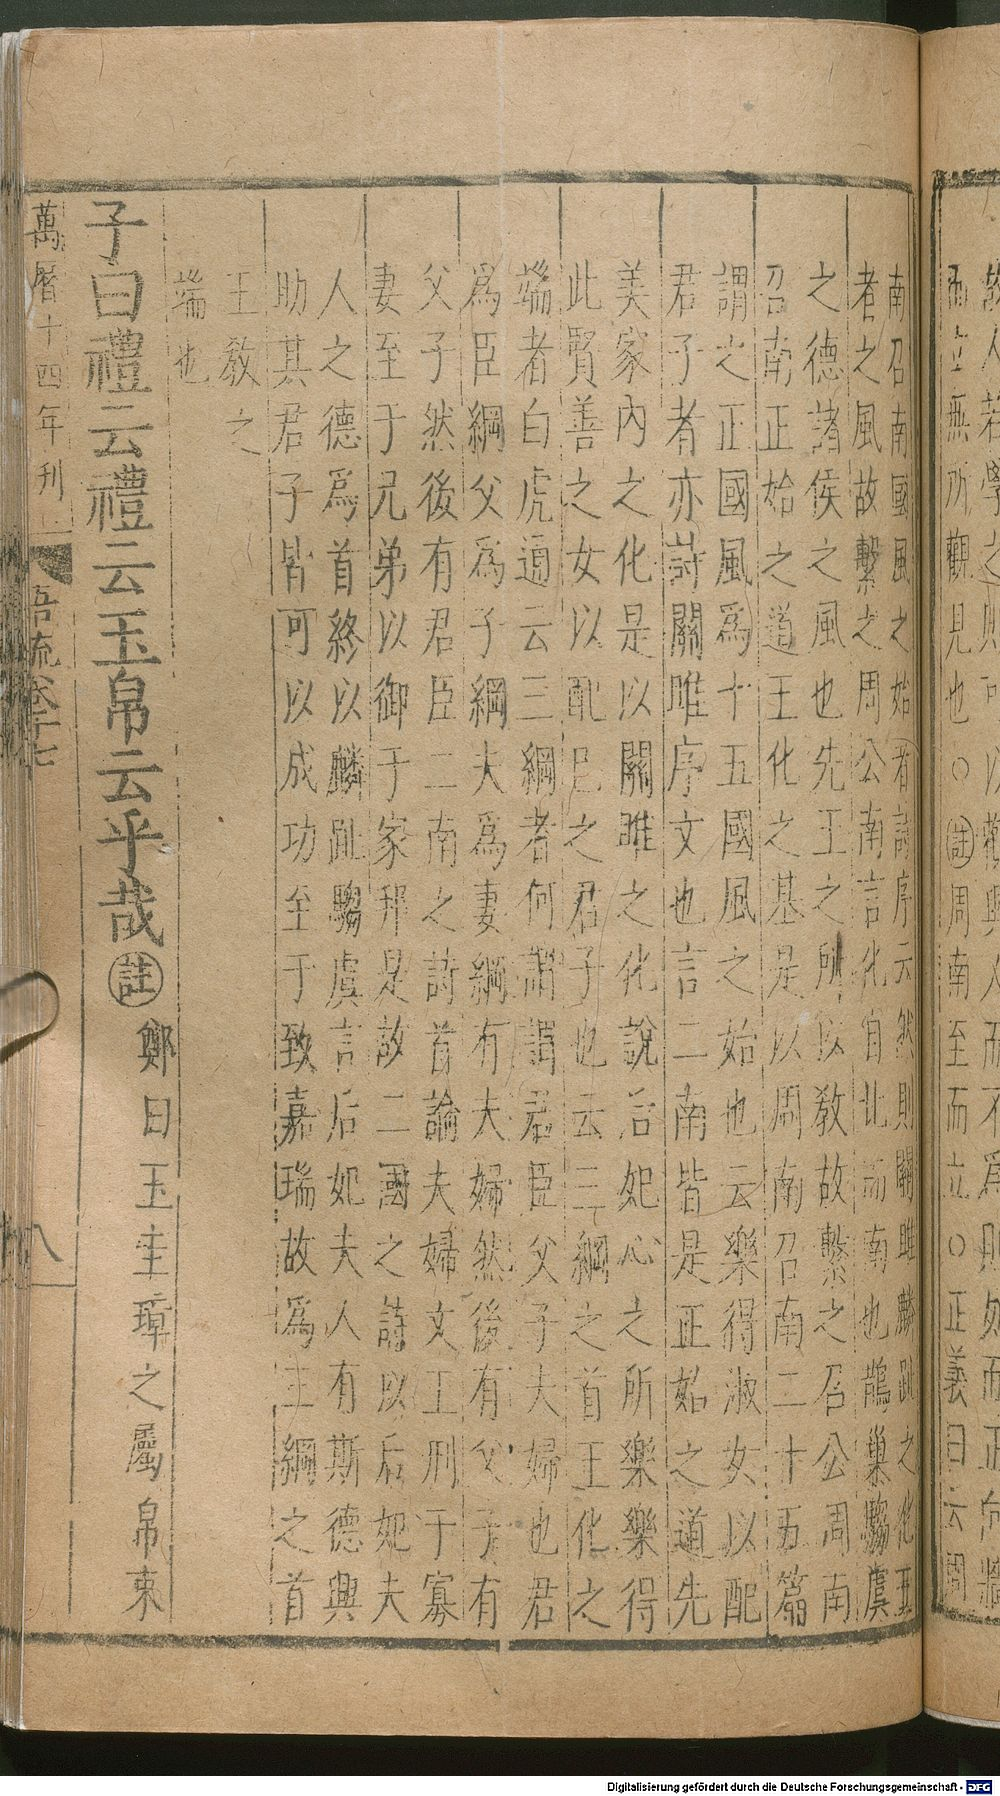 故人若學之則可以觀興人而不爲則如面正向牆
而立無所觀見也○註周南至而立○正義曰云周
南召南國風之始者詩序云然則關雎麟趾之化王
者之風故繫之周公南言化自北而南也鵲巢騶虞
之德諸侯之風也先王之所以教故繫之召公周南
召南正始之道王化之基是以周南召南二十五篇
謂之正國風爲十五國風之始也云樂得淑女以配
君子者亦詩關雎序文也言二南皆是正始之道先
美家內之化是以關雎之化說后妃心之所樂樂得
此賢善之女以配己之君子也云三綱之首王化之
端者白虎通云三綱者何謂謂君臣父子夫婦也君
爲臣綱父爲子綱夫爲妻綱有夫婦然後有父子有
父子然後有君臣二南之詩首論夫婦文王刑于寡
妻至于兄弟以御于家邦是故二國之詩以后妃夫
人之德爲首終以麟趾騶虞言后妃夫人有斯德興
助其君子皆可以成功至于致嘉瑞故爲三綱之首
王教之
端也
子曰禮云禮云玉帛云乎哉註鄭曰玉圭璋之屬帛束
萬曆十四年刊 語疏卷十七 八
Digitalisierung gefördert durch die Deutsche Forschungsgemeinschaft - DFG